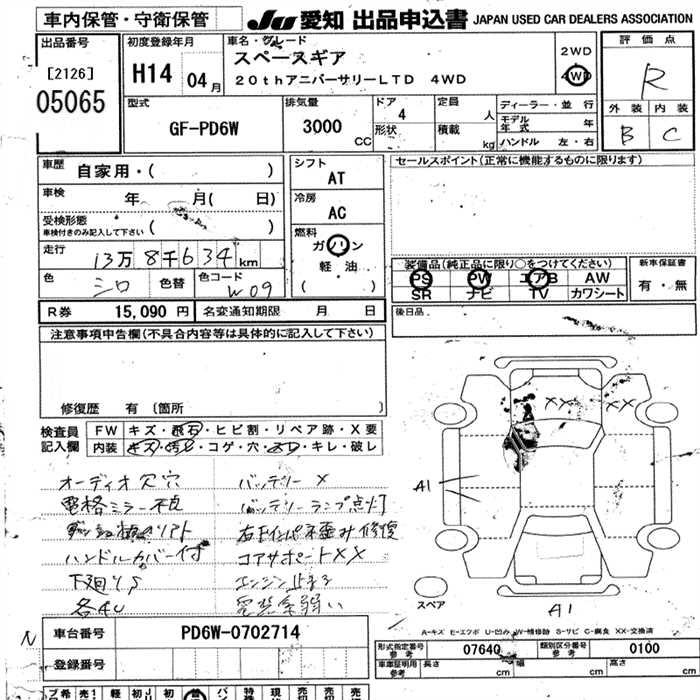 車内保管・守衛保管 JU 愛知 出品申込書 JAPAN USED CAR DEALERS ASSOCIATION
出品番号 [2126] 05065
初度登録年月 H14 04月
車名・グレード スペースギア
20thアニバーサリーLTD 4WD
2WD 4WD
評価点 R
外装 内装
B C
型式 GF-PD6W
排気量 3000 CC
ドア 4 形状
定員 人 積載 kg
ディーラー・並行
モデル年式 年
ハンドル 左・右
車歴 自家用・( )
シフト AT
セールスポイント(正常に機能するものに限ります)
車検 年 月( 日)
冷房 AC
受検形態 車検付きのみ記入して下さい ( )
燃料 ガソリン
軽・油
( )
走行 13万8千634km
色 シロ 色替 色コード W09
装備品(純正品に限り○をつけてください)
PS PW エアB AW
SR ナビ TV カワシート
新車保証書
有・無
R券 15,090円 名変通知期限 月 日
後日品
注意事項申告欄(不具合内容等は具体的に記入して下さい)
修復歴 有 〔箇所 〕
検査員記入欄
FW キズ・飛石・ヒビ割・リペア跡・X要
内装 キズ・汚レ・コゲ・穴・スレ・キレ・破レ
オーディオ欠穴 バッテリーX
電格ミラー不良 バッテリーランプ点灯
ハンドルカバー付 コアサポートXX
下廻りS エンジン止まる
各4U
XX XX
A1
スペア
A1
A-キズ E-エクボ U-凹み W-補修跡 S-サビ C-腐食 XX-交換済
N
車台番号 PD6W-0702714
登録番号
形式指定番号 参考 07640 類別区分番号 参考 0100
車庫証明用 参考 長さ cm 幅 cm 高さ cm